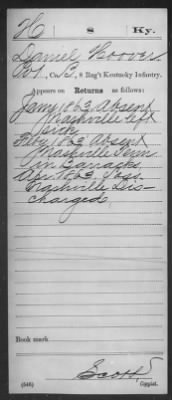 H | 8 | Ky.
Daniel Hoover
Pvt., Co. B, 8 Reg't Kentucky Infantry.
Appears on Returns as follows:
Jany 1863 Absent
Nashville left
sick
Feby 1863 Absent
Nashville Tenn
in Barracks
Apr 1863, Loss
Nashville Dis-
charged
Book mark
Scott
(546) Copyist.